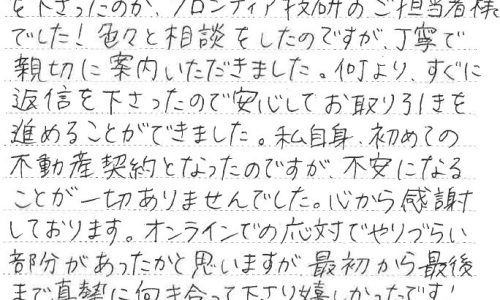 を下さったのが、フロンティア技研のご担当者様
でした！色々と相談をしたのですが、丁寧で
親切に案内いただきました。何より、すぐに
返信を下さったので安心してお取り引きを
進めることができました。私自身、初めての
不動産契約となったのですが、不安になる
ことが一切ありませんでした。心から感謝
しております。オンラインでの応対でやりづらい
部分があったかと思いますが最初から最後
まで真摯に向き合って下さり嬉しかったです！